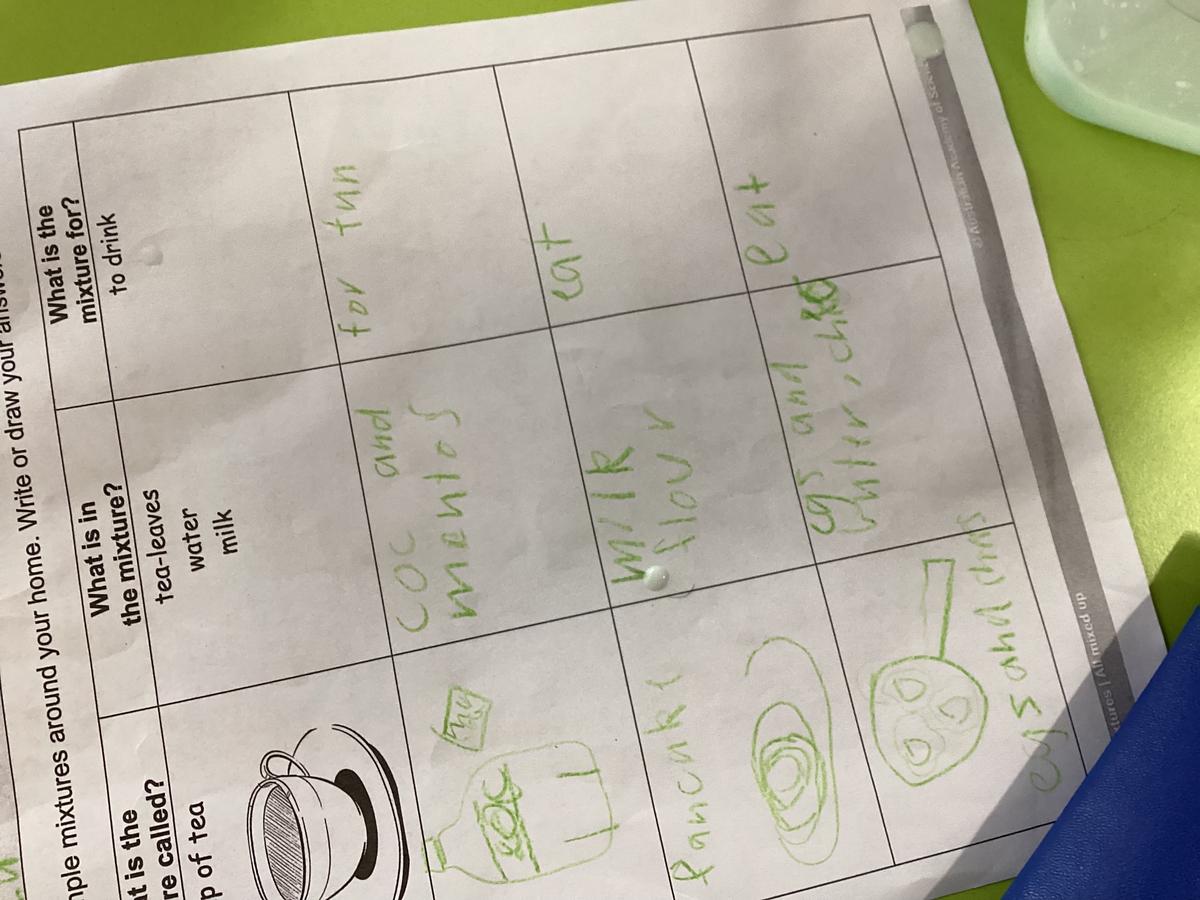 mple mixtures around your home. Write or draw your answe
at is the
re called?
What is in
the mixture?
What is the
mixture for?
p of tea
tea-leaves
water
milk
to drink
COC
COC and
mentos
for fun
Pancake
milk
flour
eat
egs and chis
egs and
buter, chis
eat
tures | All mixed up
© Australian Academy of Scien